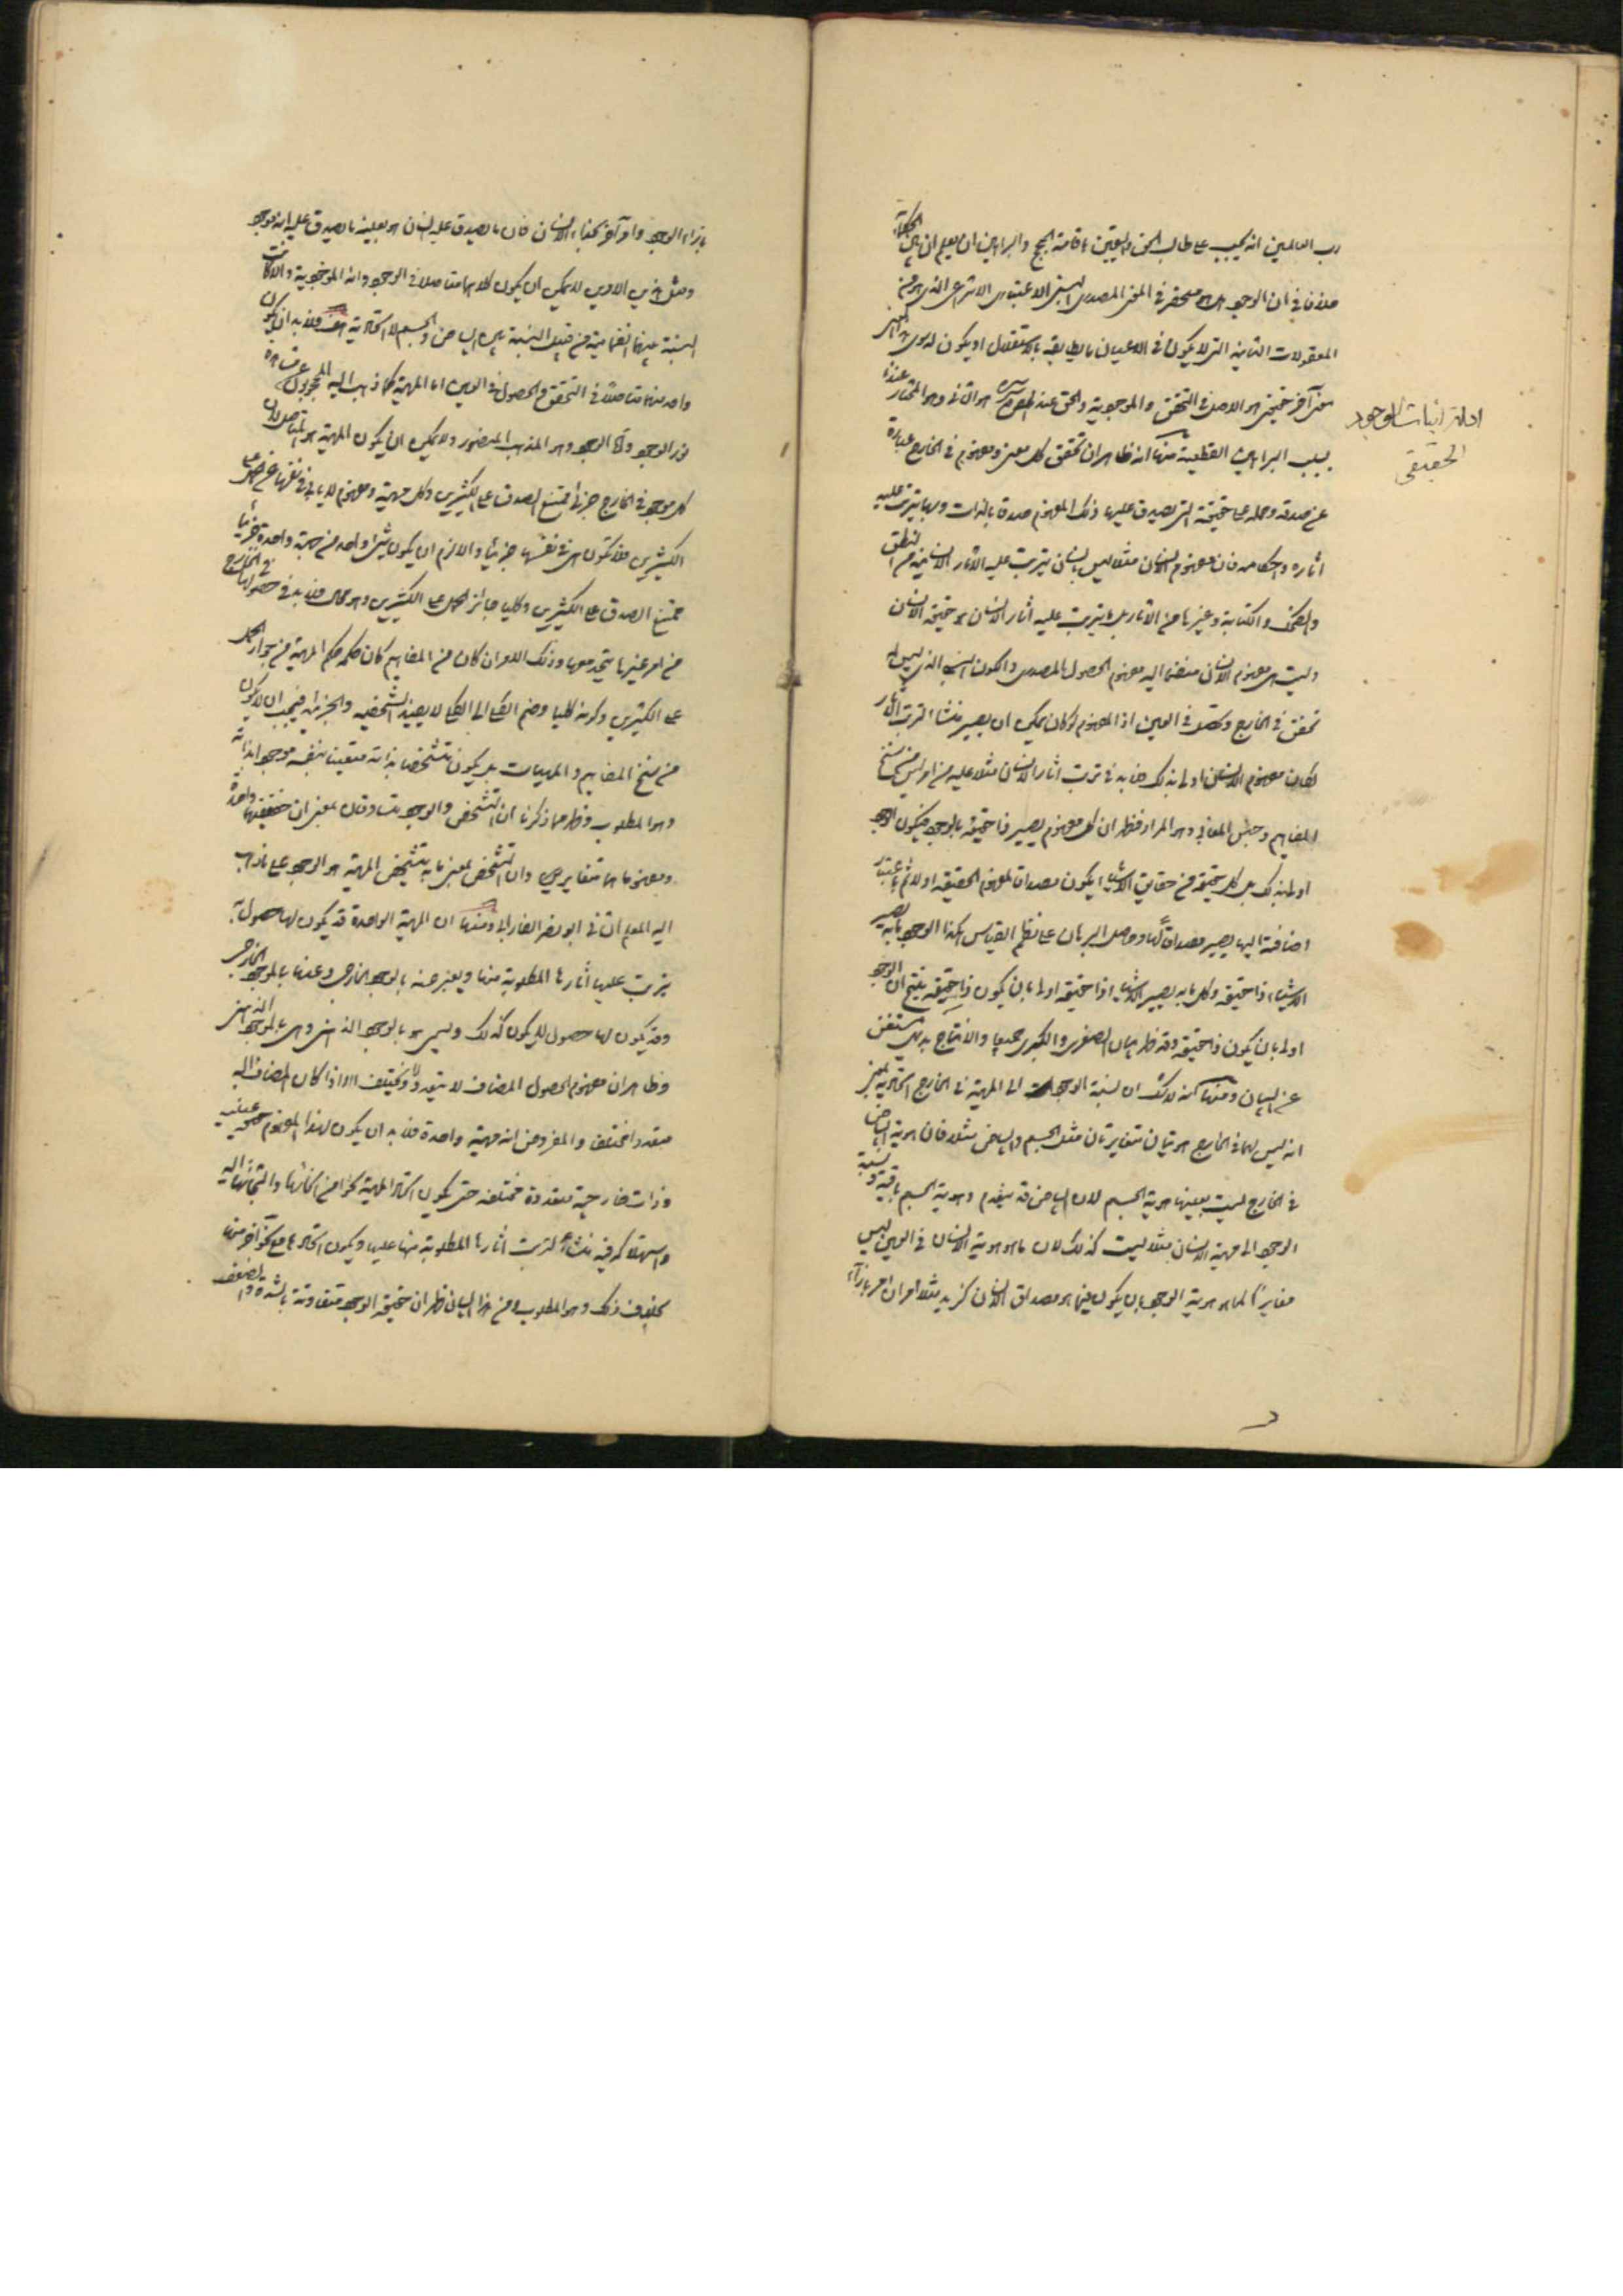 رب العالمين انه يجب على طالب الحق واليقين باقامة الحجج والبراهين ان يعلم ان بين الحكماء
خلافا في ان الوجود هل هو منحصر في المعنى المصدري النسبي الاعتباري الانتزاعي الذي هو من
المعقولات الثانية التي لا يكون في الاعيان ما يطابقه بالاستقلال او يكون له سوى هذا المعنى
معنى آخر حقيقي هو الاصل في التحقق والموجودية والحق عند المص قدس سره هو الثاني وهو المختار عندنا
ادلة اثبات الوجود
الحقيقي
بسبب البراهين القطعية منها انه ظاهر ان تحقق كل معنى ومفهوم في الخارج عبارة
عن صدقه وحمله على حقيقة التي يصدق عليها ذلك المفهوم صدقا بالذات وبها يترتب عليه
آثاره واحكامه فان مفهوم الانسان مثلا ليس بانسان يترتب عليه الآثار الانسانية من النطق
والضحك والكتابة وغيرها من الآثار بل ما يترتب عليه آثار الانسان هو حقيقة الانسان
وليست هي مفهوم الانسان منضما اليه مفهوم الحصول المصدري والكون النسبي الذي ليس له
تحقق في الخارج وتحصل في العين اذ المفهوم لو كان يمكن ان يصير منشا لترتب الآثار
لكان مفهوم الانسان اولى بذلك فلا بد في ترتب آثار الانسان مثلا عليه من امر ليس من سنخ
المفاهيم وجنس المعاني وهو المراد فظهر ان كل مفهوم يصير ذا حقيقة بالوجود فيكون الوجود
اولى بذلك بل كل حقيقة من حقايق الاشياء يكون مصداق لمفهوم الحقيقة اولا ثم باعتبار
اضافته اليها يصير مصداقا لها وحاصل البرهان على نظم القياس هكذا الوجود ما به يصير
الاشياء ذا حقيقة وكل ما به يصير الاشياء ذا حقيقة اولى بان يكون ذا حقيقة ينتج ان الوجود
اولى بان يكون ذا حقيقة وقد ظهر بيان الصغرى والكبرى جميعا والانتاج بديهي مستغن
عن البيان ومنها انه لا شك ان نسبة الوجود الى المهية في الخارج اتحادية بمعنى
انه ليس لهما في الخارج هويتان متغايرتان مثل الجسم والبياض مثلا فان هوية البياض
في الخارج ليست بعينها هوية الجسم لان البياض قد ينعدم وهوية الجسم باقية ونسبة
الوجود الى مهية الانسان مثلا ليست كذلك لان ما هو هوية الانسان في العين ليس
مغايرا لما هو هوية الوجود بان يكون فيما هو مصداق الانسان كزيد مثلا امران امر بازاء
بازاء الوجود وامر آخر بحذاء الانسان فان ما يصدق عليه انسان هو بعينه ما يصدق عليه انه موجود
ومثل هذين الامرين لا يمكن ان يكون كلاهما متاصلا في الوجود وانه الموجودية والا كانت
النسبة بينهما انضمامية من قبيل النسبة بين البياض والجسم لا اتحادية هف فلا بد ان يكون
واحد منهما متاصلا في التحقق والحصول في العين اما المهية كما ذهب اليه المحجوبون عن مشاهدة
نور الوجود واما الوجود وهو المذهب المنصور ولا يمكن ان يكون المهية هو المتاصل لان
كل موجود في الخارج جزئي ممتنع الصدق على الكثيرين وكل مهية ومفهوم لا يابى في نفسها عن الحمل على
الكثيرين فلا تكون هي في نفسها جزئيا والا لزم ان يكون شيئا واحد من جهة واحدة جزئيا
ممتنع الصدق على الكثيرين وكليا جائز الحمل على الكثيرين وهو محال فلا بد في حصولها في الخارج
من امر غيرها يتحد معها وذلك الامر ان كان من المفاهيم كان حكمه حكم المهية من جواز الحمل
على الكثيرين وكونه كليا وضم الكلي الى الكلي لا يفيد الشخصية والجزئية فيجب ان لا يكون
من سنخ المفاهيم والمهيات بل يكون متشخصا بذاته متعينا بنفسه موجودا بذاته
وهو المطلوب وظهر مما ذكرنا ان التشخص والوجود متساوقان بمعنى ان حقيقتهما واحدة
ومفهوماهما متغايرين وان التشخص بمعنى ما به يتشخص المهية هو الوجود على ما ذهب
اليه المعلم الثاني ابو نصر الفارابي ومنها ان المهية الواحدة قد يكون لها حصول به
يترتب عليها آثارها المطلوبة منها ويعبر عنه بالوجود الخارجي وعنها بالموجود الخارجي
وقد يكون لها حصول لا يكون كذلك ويسمى هو بالوجود الذهني وهي بالموجود الذهني
وظاهر ان مفهوم الحصول المضاف لا يتعدد ولا يختلف الا اذا كان المضاف اليه
متعددا مختلفا والمفروض انه مهية واحدة فلا بد ان يكون لهذا المفهوم حقيقة عينية
وذات خارجية متعددة مختلفة حتى يكون اتحاد المهية بنحو من انحائها والتجائها اليه
واستهلاكه فيه منشاء لترتب آثارها المطلوبة منها عليها ويكون اتحادها مع نحو آخر منها
بخلاف ذلك وهو المطلوب ومن هذا البيان ظهر ان حقيقة الوجود متفاوتة بالشدة والضعف